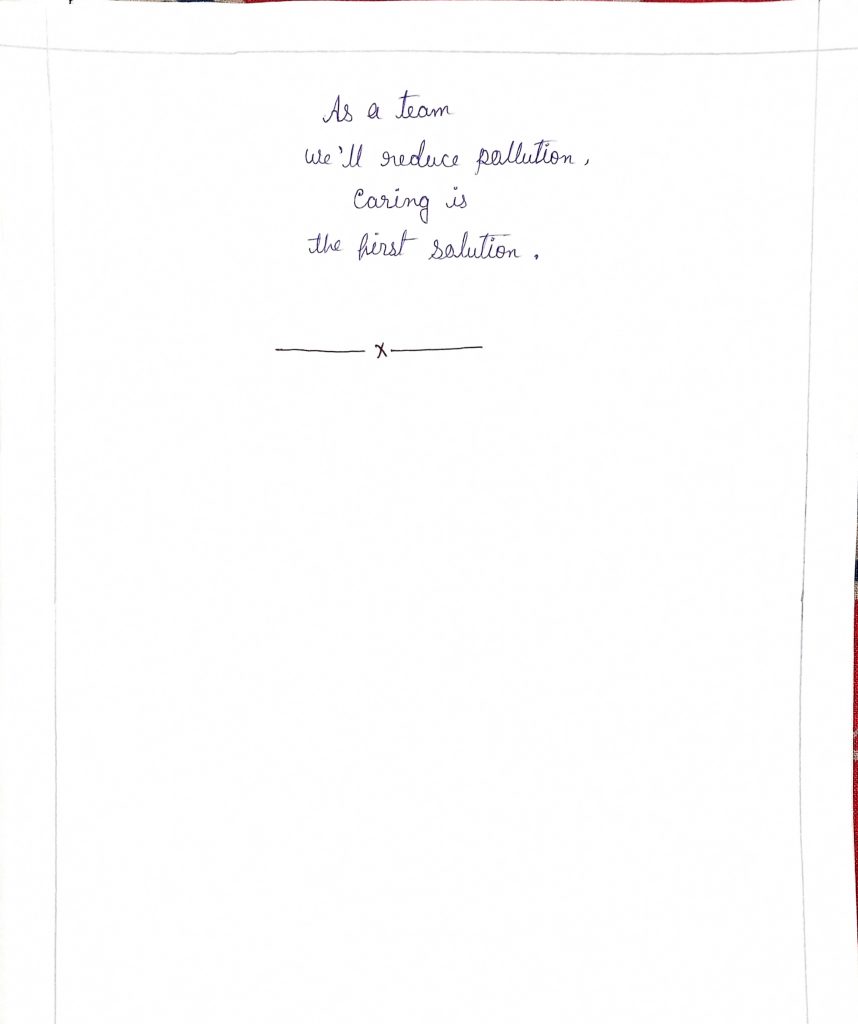 As a team
we'll reduce pollution,
Caring is
the first solution.
x